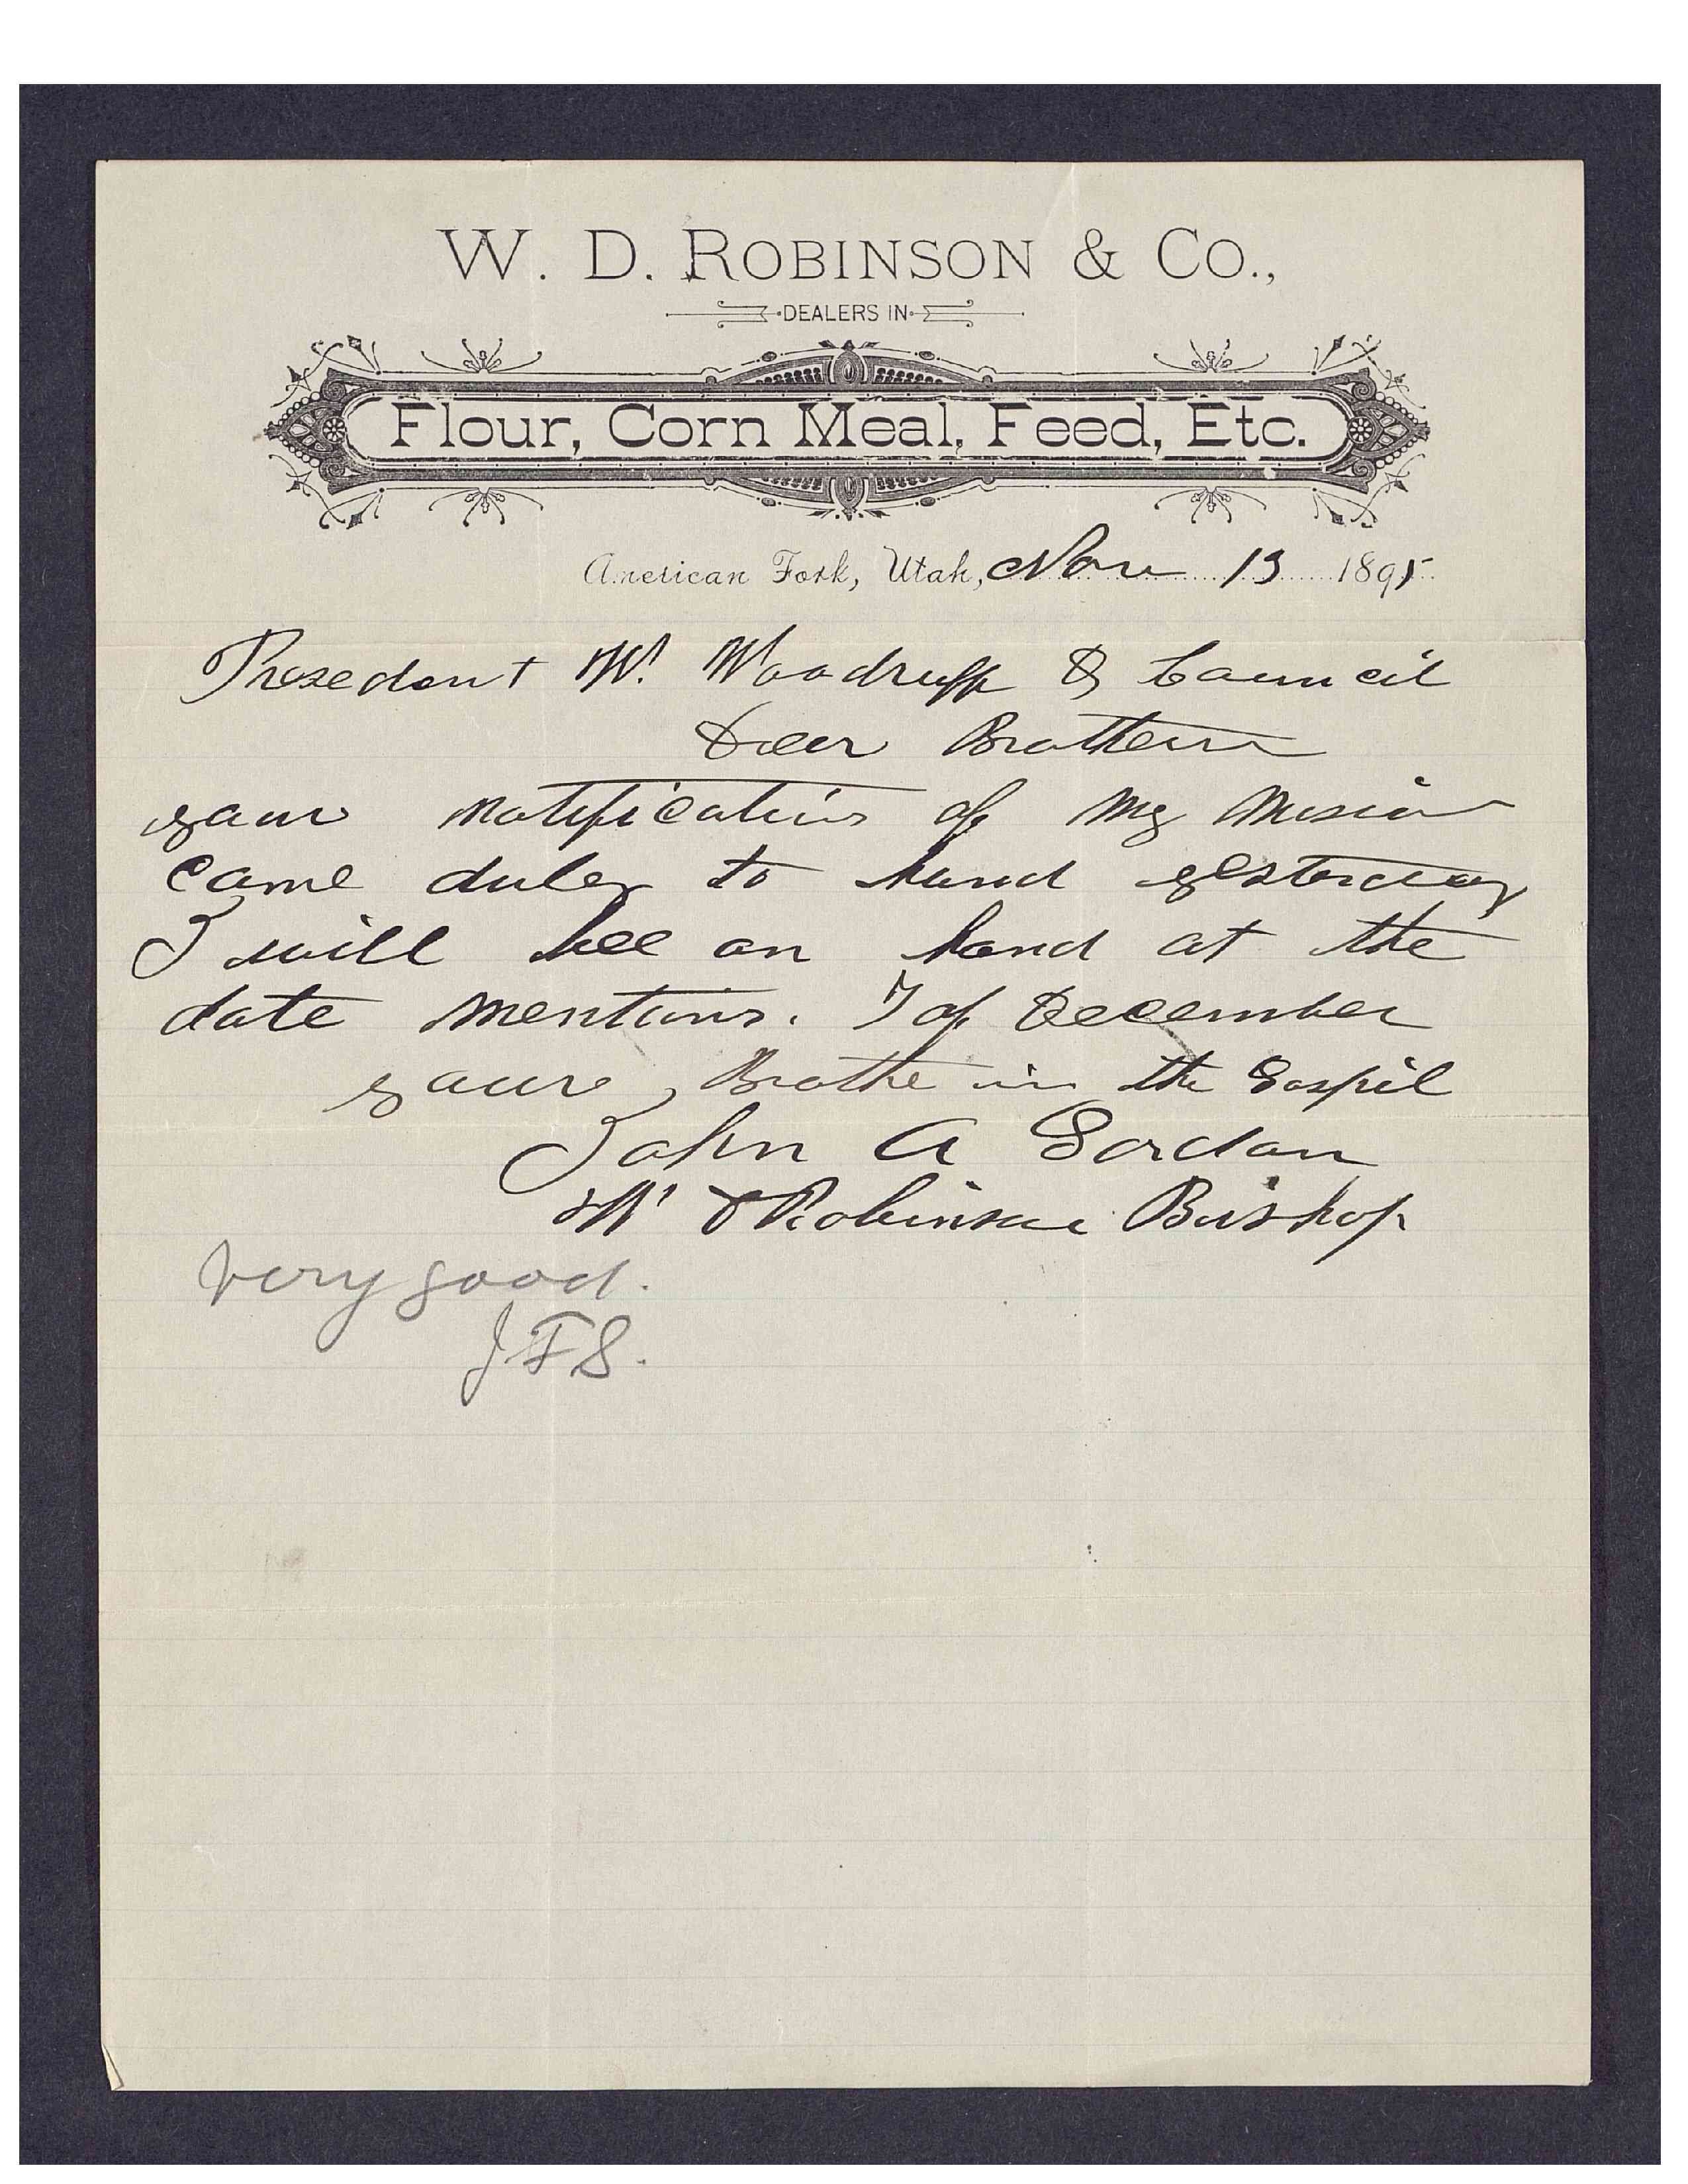 W. D. ROBINSON & CO.,
DEALERS IN
Flour, Corn Meal, Feed, Etc.
American Fork, Utah, Nov 13 1895
Presedent W. Woodruff & Council
Deer Brothern
your notification of my mision
came duley to hand yesterday
I will bee on hand at the
date mentions. 7 of December
your Brothe in the Gospil
John A Gordon
W D Robinson Bishop
Very good.
J F S.